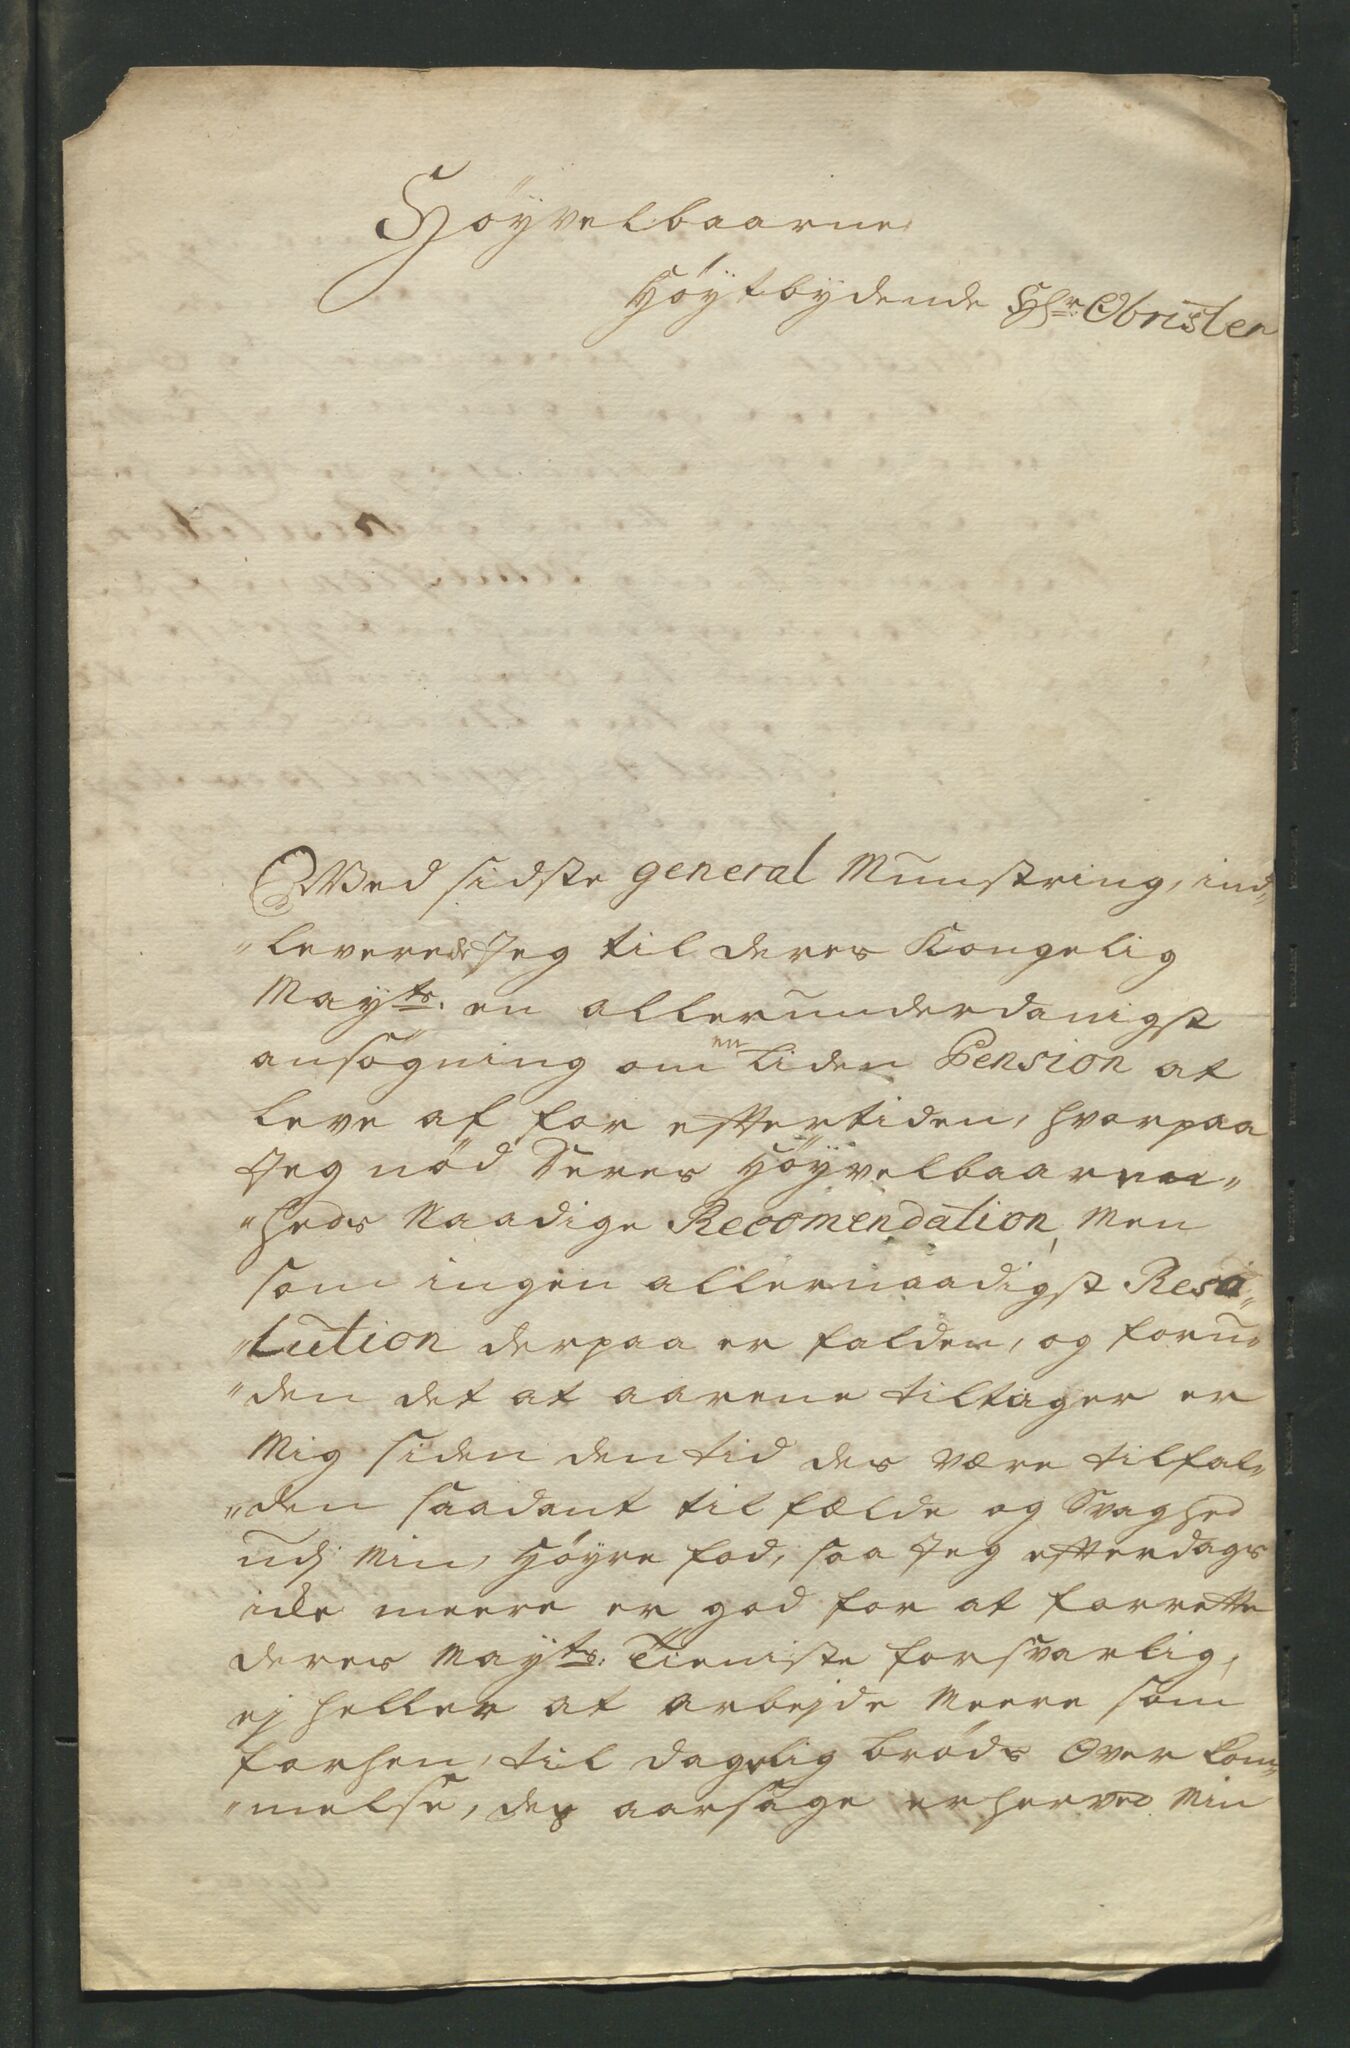 Höyvelbaarne
Höytbydende Hr: Obrister
Wed sidste general Munstring, ind„
„leverede Jeg til deres Kongelig
Mayts: en allerunderdanigst
ansögning om en liden Pension at
leve af for effvertiden, hvorpaa
Jeg nöd Deres Höyvelbaaren„
„heds Naadige Recomendation, Men
som ingen allernaadigst Reso„
„lution derpaa er falden, og foru„
„den det at aarene tiltager er
Mig siden den tid des være tilfal„
„den saadant tilfælde og Svaghed
udj Min Höyre fod, saa Jeg efterdags
icke meere er god for at forrette
deres Mayts: Tieniste forsvarlig,
ej heller at arbejde Meere som
forhen, til dagelig bröds Over kom„
„melse, des aarsage er herved Min